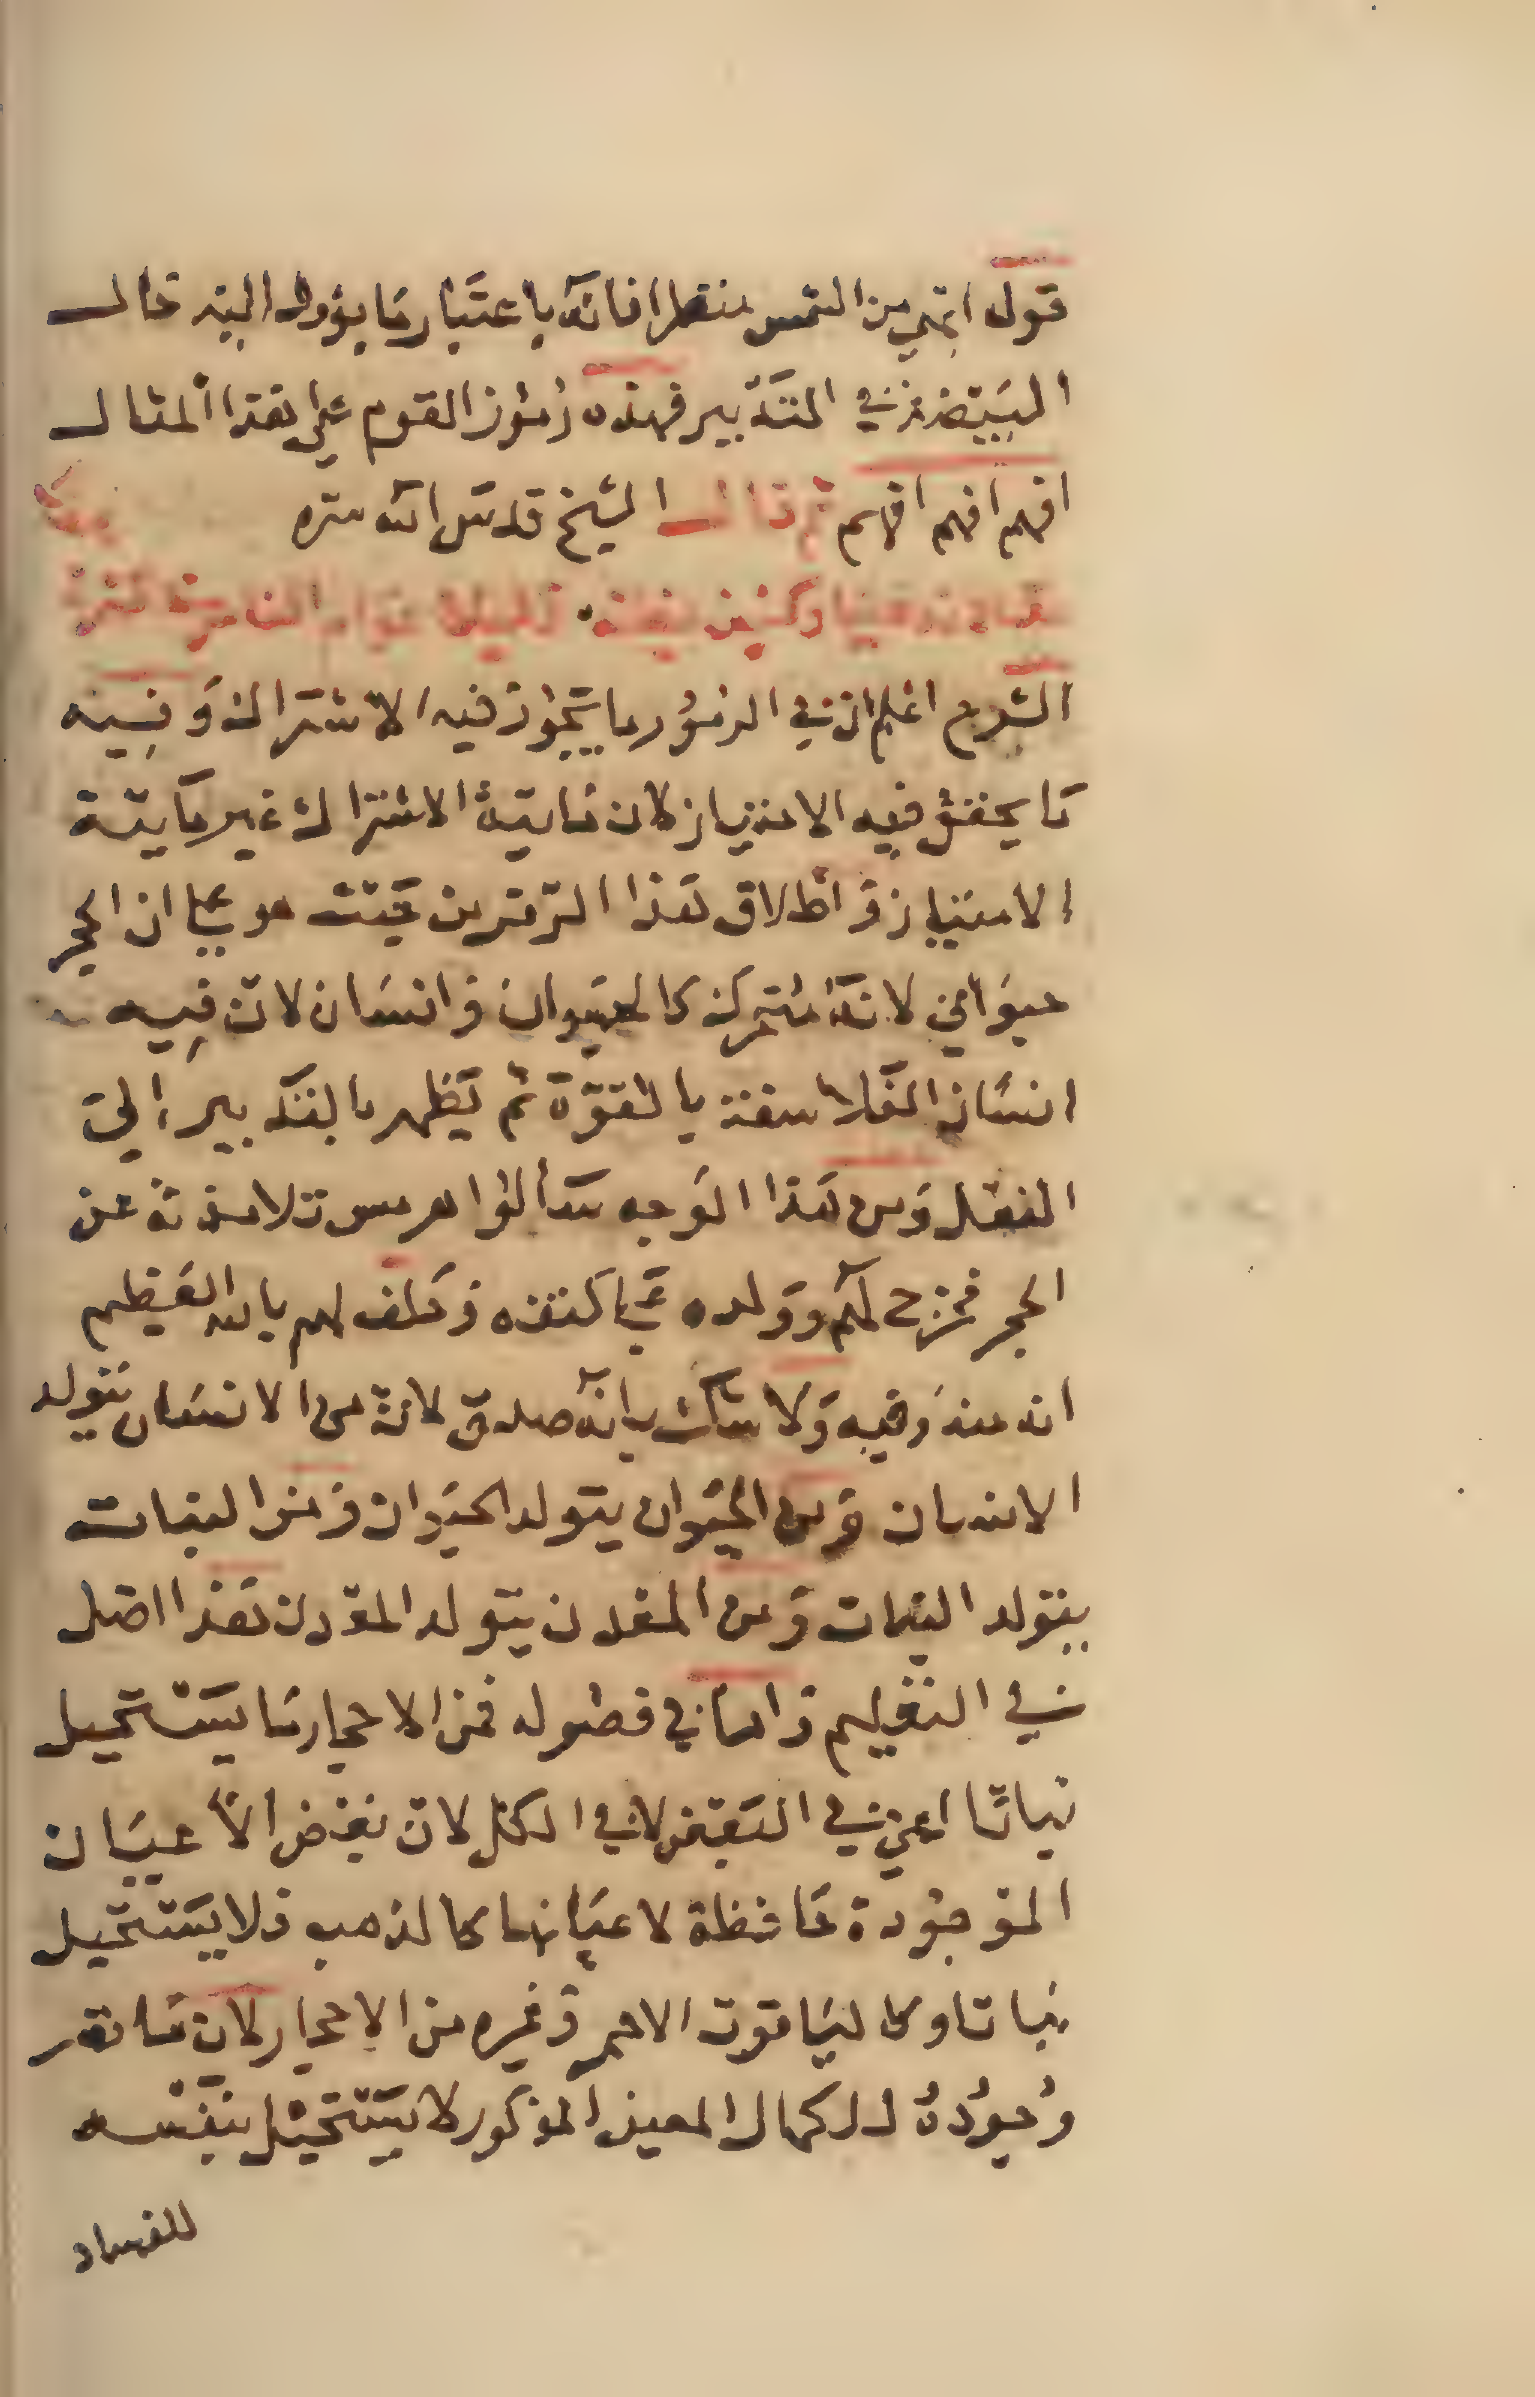 قول ابهى من الشمس منظرا فانه باعتبار ما يؤول اليه حال
البيضة في التدبير فهذه رموز القوم على هذا المثال
افهم افهم افهم ثم قال الشيخ قدس الله سره
الشرح اعلم ان في الرموز ما يتجوز فيه الاشتراك وفيه
ما يحقق فيه الامتياز لان ما به الاشتراك غير ما به
الامتياز واطلاق هذا الرمز من حيث هو على ان الحجر
حيواني لانه متحرك كالحيوان وانسان لان فيه
انسان الفلاسفة بالقوة ثم يظهر بالتدبير الى
الفعل ومن هذا الوجه سألوا هرمس تلامذته عن
الحجر فخرج لهم وولده على كتفه وحلف لهم بالله العظيم
انه منه وفيه ولا شك بانه صدق لانه من الانسان يتولد
الانسان ومن الحيوان يتولد الحيوان ومن النبات
يتولد النبات ومن المعدن يتولد المعدن هذا اصل
في التعليم واما في فصوله فمن الاحجار ما يستحيل
نباتا اعني في البعض لا في الكل لان بعض الاعيان
الموجودة حافظة لاعيانها كالذهب فلا يستحيل
نباتا وكالياقوت الاحمر وغيره من الاحجار لان ما تم
وجوده للكمال المعين المذكور لا يستحيل بنفسه
للفساد